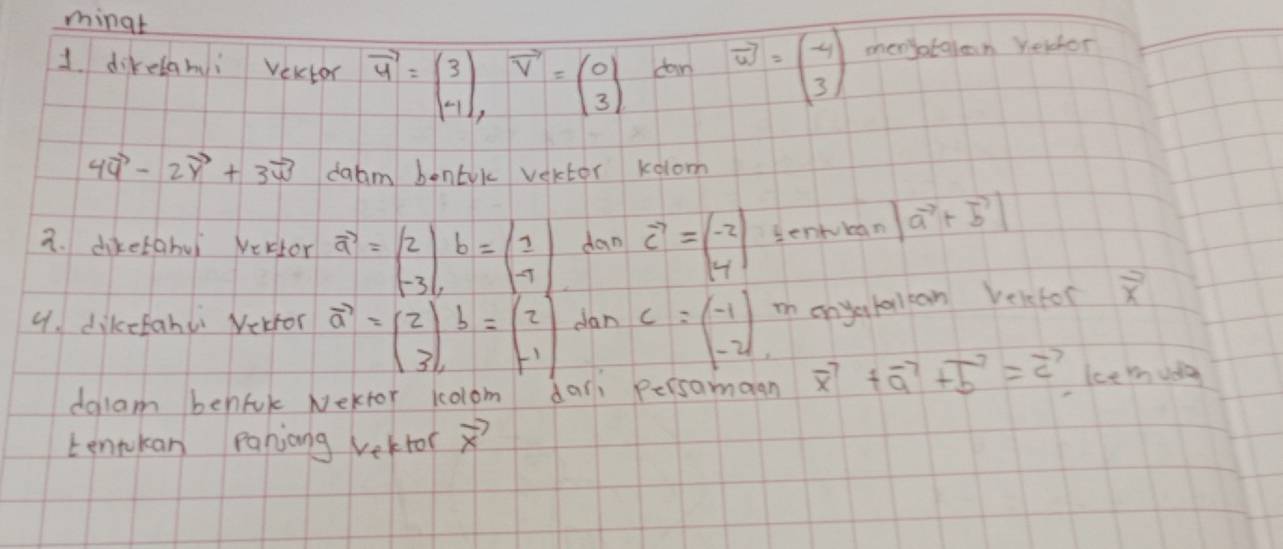 minat
1. diketahui vektor u⃗ = (3 -1), v⃗ = (0 3) dan w⃗ = (-4 3) menyatakan vektor
4u⃗ - 2v⃗ + 3w⃗ dalam bentuk vektor kolom
2. diketahui vektor a⃗ = (2 -3), b = (1 -1) dan c⃗ = (-2 4) tentukan |a⃗ + b⃗|
4. diketahui vektor a⃗ = (2 3), b = (2 -1) dan c = (-1 -2). menyatakan vektor x⃗
dalam bentuk vektor kolom dari persamaan x⃗ + a⃗ + b⃗ = c⃗. kemuda
tentukan panjang vektor x⃗